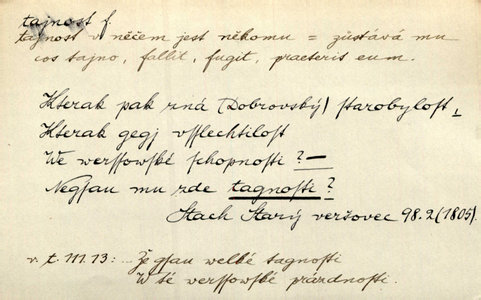 tajnost f.
tajnost v něčem jest někomu = zůstává mu
cos tajno, fallit, fugit, praeterit eum.
Kterak pak zná (Dobrovský) starobylost,
Kterak gegj vsslechtilost
We werssowské schopnosti? —
Negsau mu zde tagnosti?
Stach Starý veršovec 98.2 (1805)
v. t. 111.13: Že gsau welké tagnosti
W té werssowské prázdnosti.